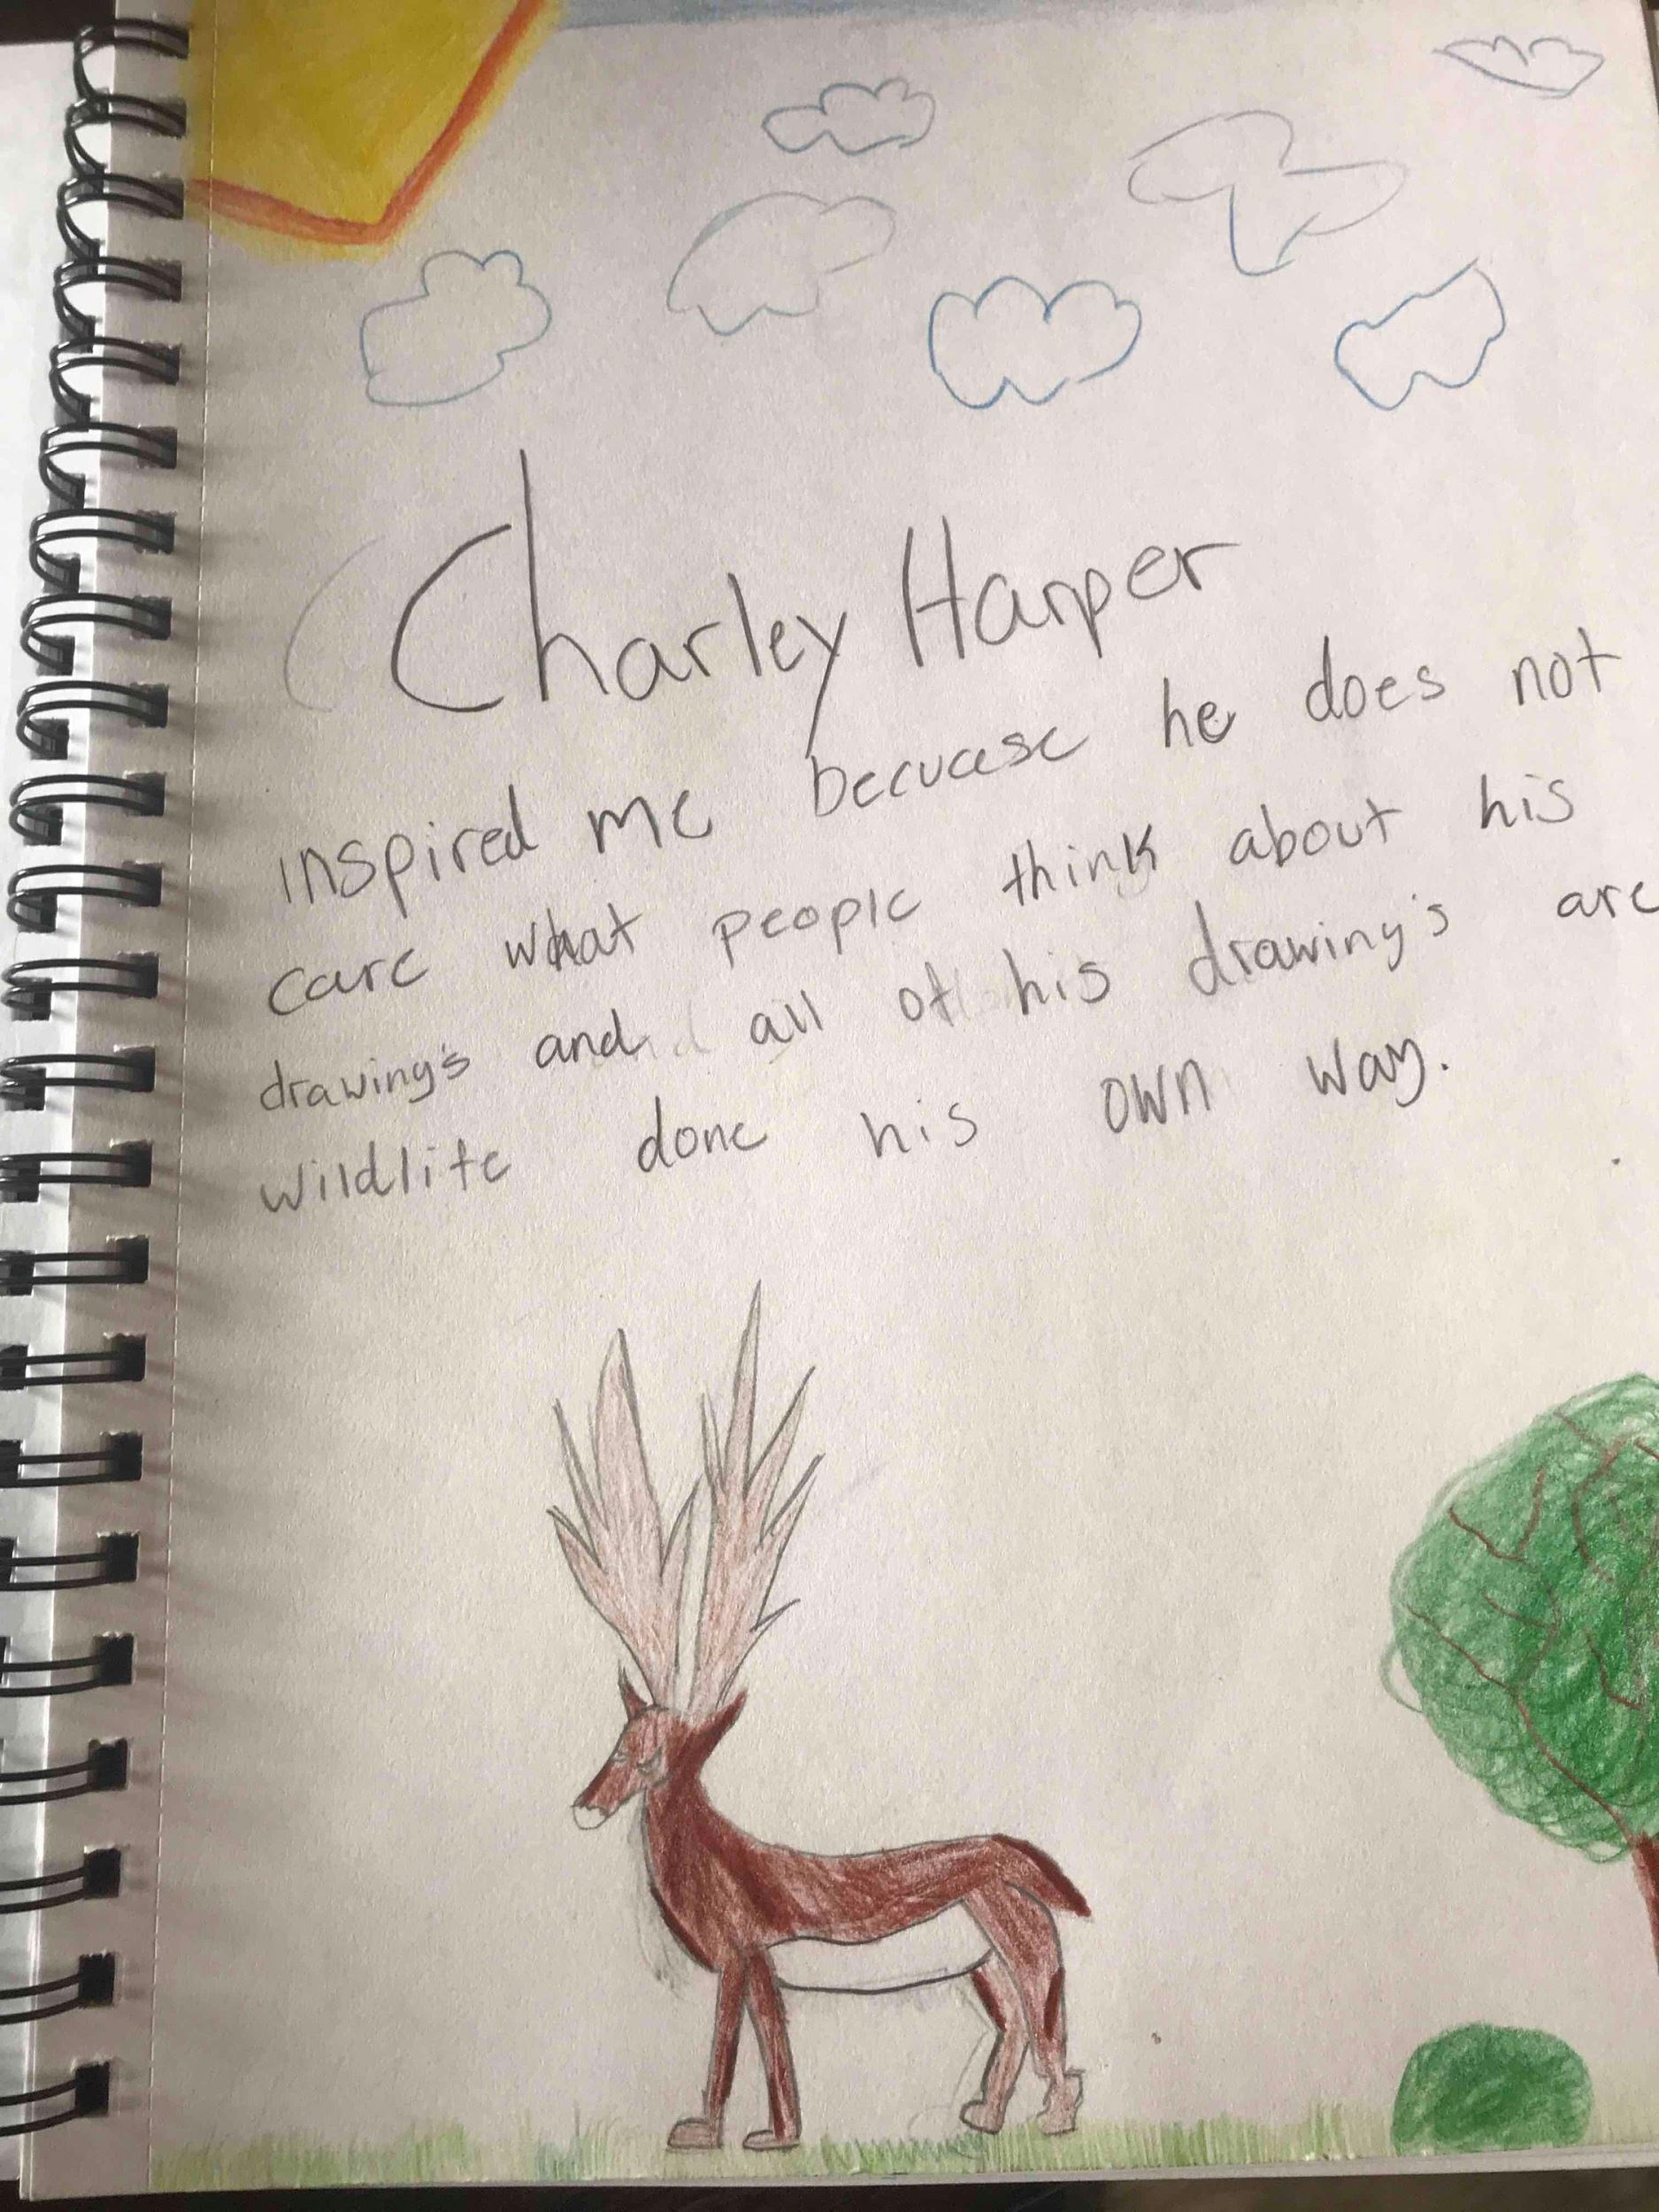 Charley Harper
inspired me becuase he does not
care what people think about his
drawing's and all of his drawing's are
wildlife done his own way.